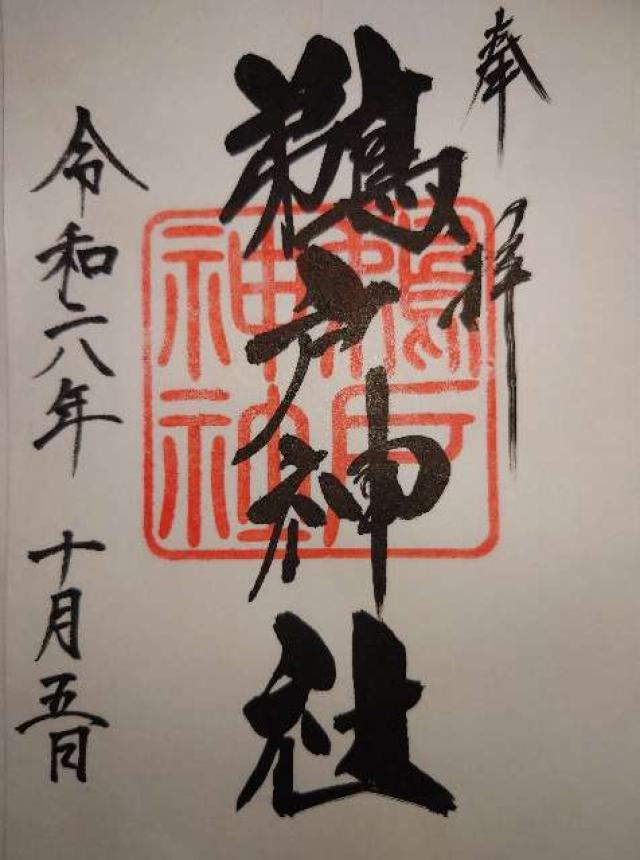 奉拝
鵜戸神社
鵜戸
神社
令和六年 十月五日